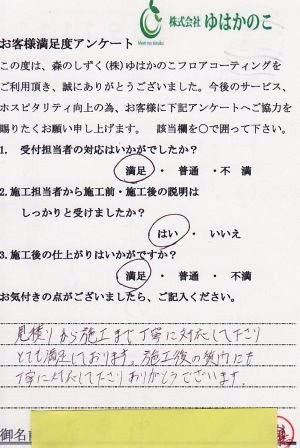 株式会社 ゆはかのこ
お客様満足度アンケート
この度は、森のしずく(株)ゆはかのこフロアコーティングを
ご利用頂き、誠にありがとうございました。今後のサービス、
ホスピタリティ向上の為、お客様に下記アンケートへご協力を
賜りたくお願い申し上げます。 該当欄を〇で囲って下さい。
1. 受付担当者の対応はいかがでしたか?
満足 ・ 普通 ・ 不 満
2. 施工担当者から施工前・施工後の説明は
しっかりと受けましたか?
はい ・ いいえ
3. 施工後の仕上がりはいかがですか?
満足 ・ 普通 ・ 不満
お気付きの点がございましたら、ご記入ください。
見積りから施工まで丁寧に対応して下さり
とても満足しております。施工後の質問にも
丁寧に対応して下さりありがとうございます。
御名前